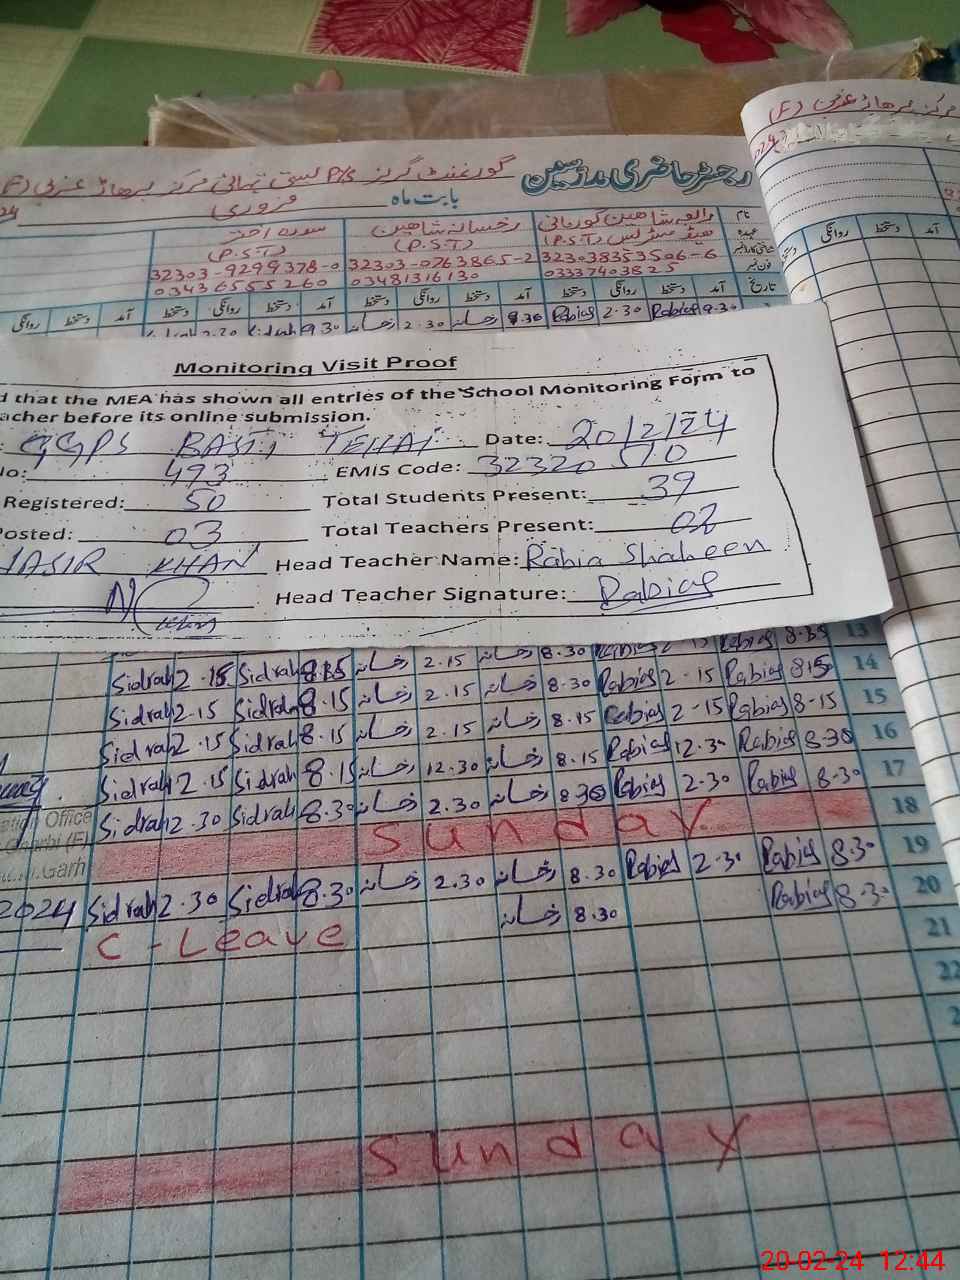 رجسٹر حاضری مدرسین
گورنمنٹ گرلز P/S بستی تہائی مرکز پرھاڑ غربی (F)
بابت ماہ فروری
مرکز پرھاڑ غربی (F)
نام رابعہ شاہین گورمانی رخسانہ شاہین سدرہ اختر
عہدہ ہیڈ مسٹریس (P.S.T) (P.S.T) (P.S.T)
شناختی کارڈ نمبر 32303-0763865-2 32303-9299378-0
فون نمبر 03337403825 03481316130 03436555260
تاریخ آمد دستخط روانگی دستخط آمد دستخط روانگی دستخط آمد دستخط روانگی دستخط آمد دستخط روانگی
آمد دستخط روانگی دستخط
9.30 Rabias 2.30 Rabias 9.30 رخسانہ 2.30 رخسانہ 9.30 Sidrah 2.30
Monitoring Visit Proof
d that the MEA has shown all entries of the School Monitoring Form to
acher before its online submission.
GGPS BASTI TEHAI Date: 20/2/24
No: 493 EMIS Code: 32320510
Registered: 50 Total Students Present: 39
Posted: 03 Total Teachers Present: 02
YASIR KHAN Head Teacher Name: Rabia Shaheen
Head Teacher Signature: Rabias
13
Sidrah 2.15 Sidrah 8.15 رخسانہ 2.15 رخسانہ 8.30 Rabias 2-15 Rabias 8.15 14
Sidrah 2.15 Sidrah 8.15 رخسانہ 2.15 رخسانہ 8.30 Rabias 2-15 Rabias 8-15 15
Sidrah 2.15 Sidrah 8.15 رخسانہ 2.15 رخسانہ 8.15 Rabias 12.30 Rabias 8.30 16
Sidrah 2.15 Sidrah 8.15 رخسانہ 12.30 رخسانہ 8.15 Rabias 2.30 Rabias 8.30 17
Sidrah 2.30 Sidrah 8.30 رخسانہ 2.30 رخسانہ 8.30
Sunday 18
Sidrah 2.30 Sidrah 8.30 رخسانہ 2.30 رخسانہ 8.30 Rabias 2.30 Rabias 8.30 19
C - Leave رخسانہ 8.30 Rabias 8.30 20
ation Office
Gharbi (F)
Garh
2024
21
22
2
Sunday
20-02-24 12:44